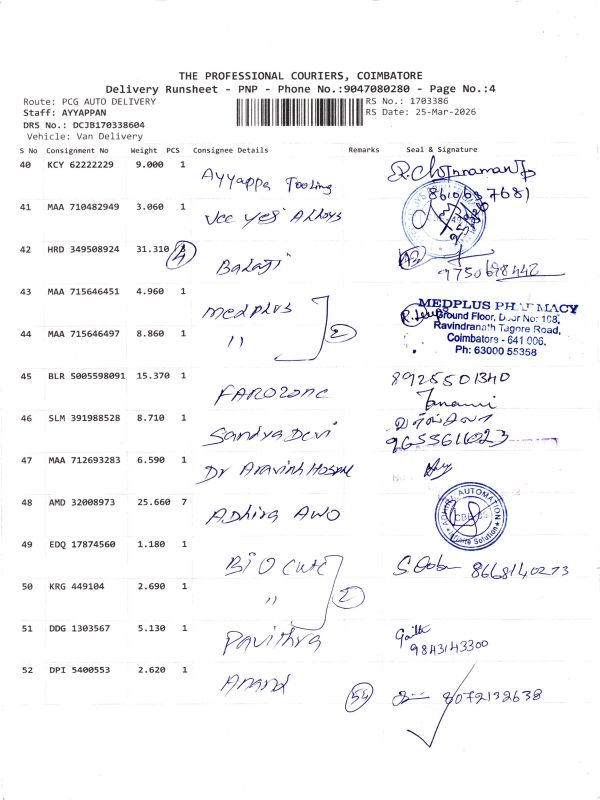 THE PROFESSIONAL COURIERS, COIMBATORE
Delivery Runsheet - PNP - Phone No.:9047080280 - Page No.:4
Route: PCG AUTO DELIVERY
Staff: AYYAPPAN
DRS No.: DCJB170338604
Vehicle: Van Delivery
RS No.: 1703386
RS Date: 25-Mar-2026
S No Consignment No Weight PCS Consignee Details Remarks Seal & Signature
40 KCY 62222229 9.000 1 Ayyappa Tooling
41 MAA 710482949 3.060 1 Vee yes Alloys
42 HRD 349508924 31.310 4 Balaji
9750698442
43 MAA 715646451 4.960 1 medplus
44 MAA 715646497 8.860 1 " 2
MEDPLUS PHARMACY
Ground Floor, Door No: 108,
Ravindranath Tagore Road,
Coimbatore - 641 006.
Ph: 63000 55358
45 BLR 5005598091 15.370 1 FAROzone 8925501340
46 SLM 391988528 8.710 1 Sandya Devi
47 MAA 712693283 6.590 1 Dr Aravinth
48 AMD 32008973 25.660 7 Adhira
ADHIRA AUTOMATION
Infinite Solution
49 EDQ 17874560 1.180 1 8668140273
50 KRG 449104 2.690 1 " 2
51 DDG 1303567 5.130 1 Pavithra
9843143300
52 DPI 5400553 2.620 1 Anand 54 8072132638